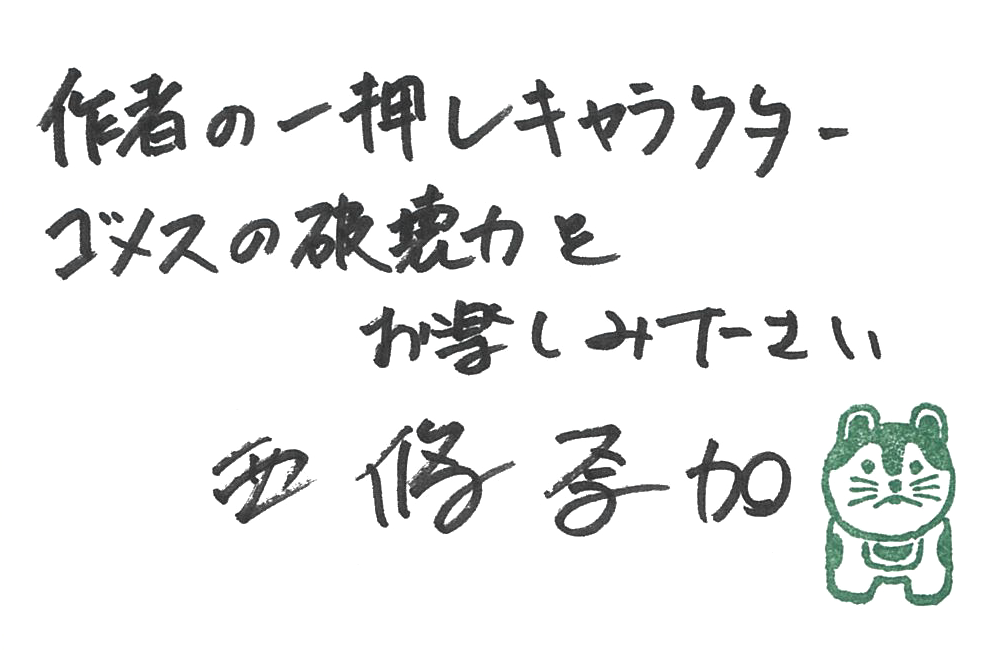 作者の一押しキャラクター
ゴメスの破壊力を
お楽しみ下さい
西條奈加